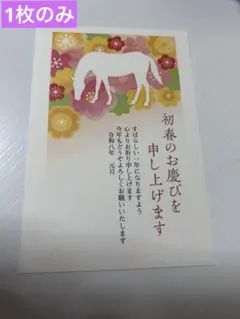 1枚のみ
初春のお慶びを
申し上げます
すばらしい一年になりますよう
心よりお祈り申し上げます
今年もどうぞよろしくお願いいたします
令和八年 元旦